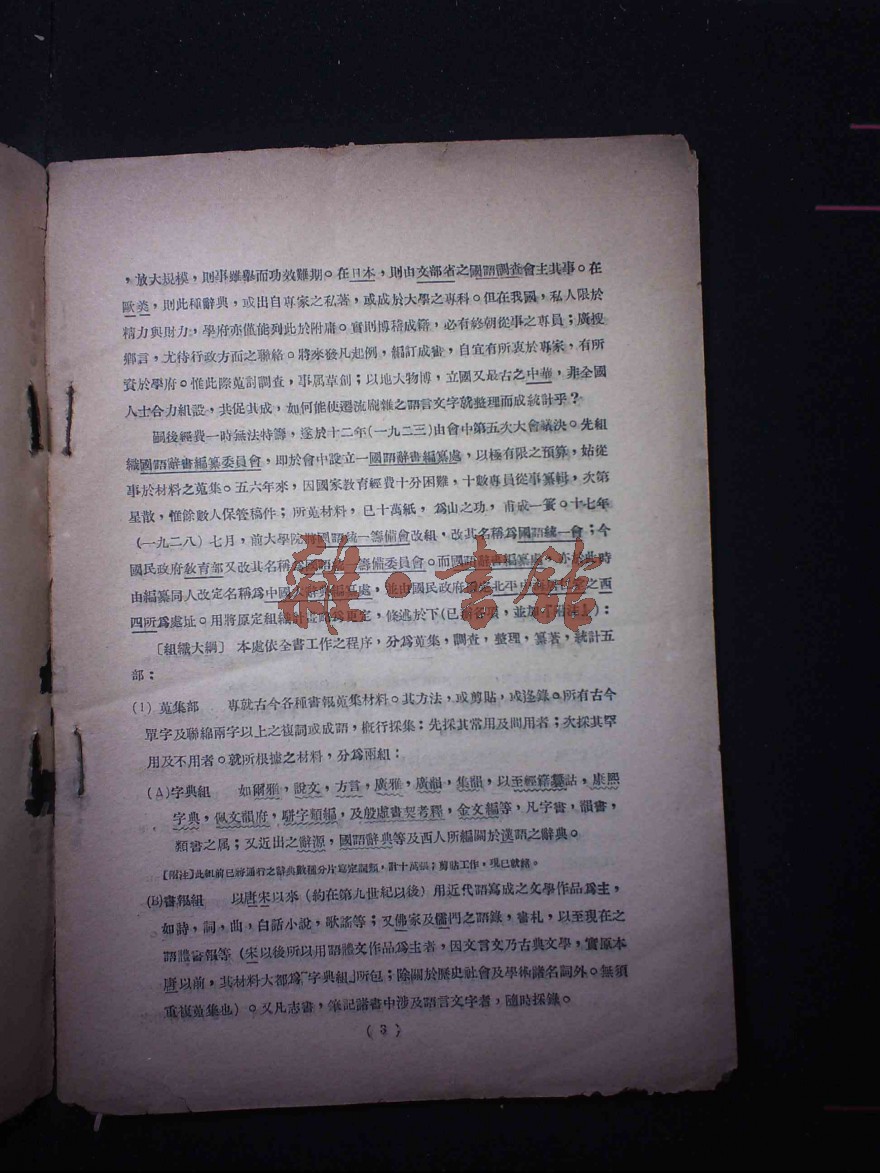 ，放大規模，則事雖舉而功效難期。在日本，則由文部省之國語調查會主其事。在
歐美，則此種辭典，或出自專家之私著，或成於大學之專科。但在我國，私人限於
精力與財力，學府亦僅能列此於附庸。實則博稽成籍，必有終朝從事之專員；廣搜
鄉言，尤待行政方面之聯絡。將來發凡起例，編訂成書，自宜有所衷於專家，有所
資於學府。惟此際蒐討調查，事屬草創；以地大物博，立國又最古之中華，非全國
人士合力組設，共促其成，如何能使遷流龐雜之語言文字就整理而成統計乎？
嗣後經費一時無法特籌，遂於十二年(一九二三)由會中第五次大會議決。先組
織國語辭書編纂委員會，即於會中設立一國語辭書編纂處，以極有限之預算，姑從
事於材料之蒐集。五六年來，因國家教育經費十分困難，十數專員從事纂輯，次第
星散，惟餘數人保管稿件；所蒐材料，已十萬紙，爲山之功，甫成一簣。十七年
(一九二八)七月，前大學院將國語統一籌備會改組，改其名稱爲國語統一會；今
國民政府教育部又改其名稱爲國語統一籌備委員會。而國語辭書編纂處，亦於此時
由編纂同人改定名稱爲中國大辭典編纂處，並由國民政府指定北平中南海之西
四所爲處址。用將原定組織計畫略爲更定，條述於下(已辦各項，並加了附注)：
［組織大綱］ 本處依全書工作之程序，分爲蒐集，調查，整理，纂著，統計五
部：
(1) 蒐集部 專就古今各種書報蒐集材料。其方法，或剪貼，或逐錄。所有古今
單字及聯綿兩字以上之複詞或成語，概行採集；先採其常用及間用者；次採其罕
用及不用者。就所根據之材料，分爲兩組：
(A)字典組 如爾雅，說文，方言，廣雅，廣韻，集韻，以至經籍纂詁，康熙
字典，佩文韻府，駢字類編，及殷虛書契考釋，金文編等，凡字書，韻書，
類書之屬；又近出之辭源，國語辭典等及西人所編關於漢語之辭典。
［附注］此組前已將通行之辭典數種分片寫定詞類，計十萬張；剪貼工作，現已就緒。
(B)書報組 以唐宋以來（約在第九世紀以後）用近代語寫成之文學作品爲主，
如詩，詞，曲，白話小說，歌謠等；又佛家及儒門之語錄，書札，以至現在之
語體書報等（宋以後所以用語體文作品爲主者，因文言文乃古典文學，實原本
唐以前，其材料大都爲「字典組」所包；除關於歷史社會及學術諸名詞外。無須
重複蒐集也）。又凡志書，筆記諸書中涉及語言文字者，隨時採錄。
( 3 )
雜·書館